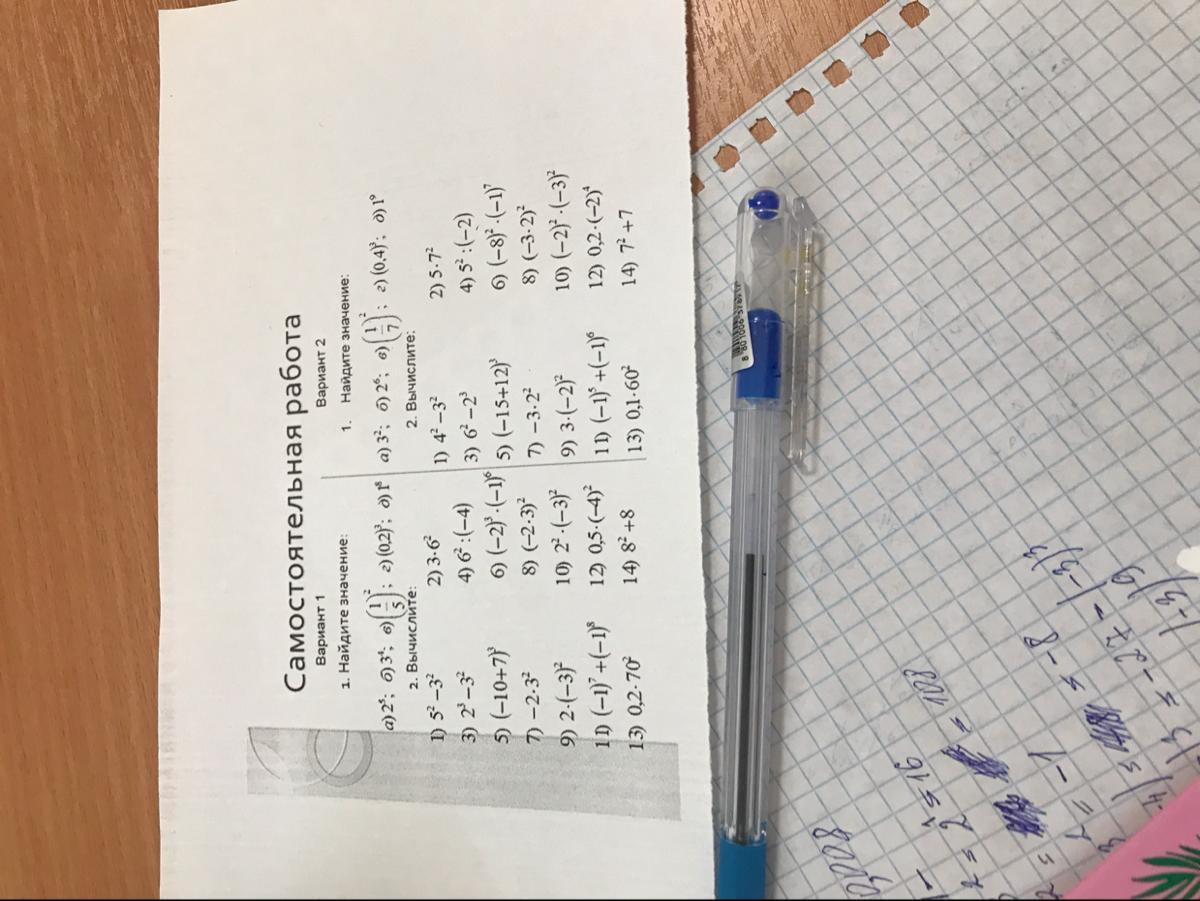 Самостоятельная работа
Вариант 1
1. Найдите значение:
а) 2⁵; б) 3⁴; в) (1/5)²; г) (0,2)³; д) 1⁸
2. Вычислите:
1) 5² −3² 2) 3·6²
3) 2³ −3² 4) 6² :(−4)
5) (−10+7)³ 6) (−2)³ ·(−1)⁶
7) −2·3² 8) (−2·3)²
9) 2·(−3)² 10) 2² ·(−3)²
11) (−1)⁷ +(−1)⁸ 12) 0,5·(−4)²
13) 0,2·70² 14) 8² +8
Вариант 2
1. Найдите значение:
а) 3²; б) 2⁶; в) (1/7)²; г) (0,4)³; д) 1⁹
2. Вычислите:
1) 4² −3² 2) 5·7²
3) 6² −2³ 4) 5² :(−2)
5) (−15+12)³ 6) (−8)² ·(−1)⁷
7) −3·2² 8) (−3·2)²
9) 3·(−2)² 10) (−2)² ·(−3)²
11) (−1)⁵ +(−1)⁶ 12) 0,2·(−2)⁴
13) 0,1·60² 14) 7² +7
= 108
= −1